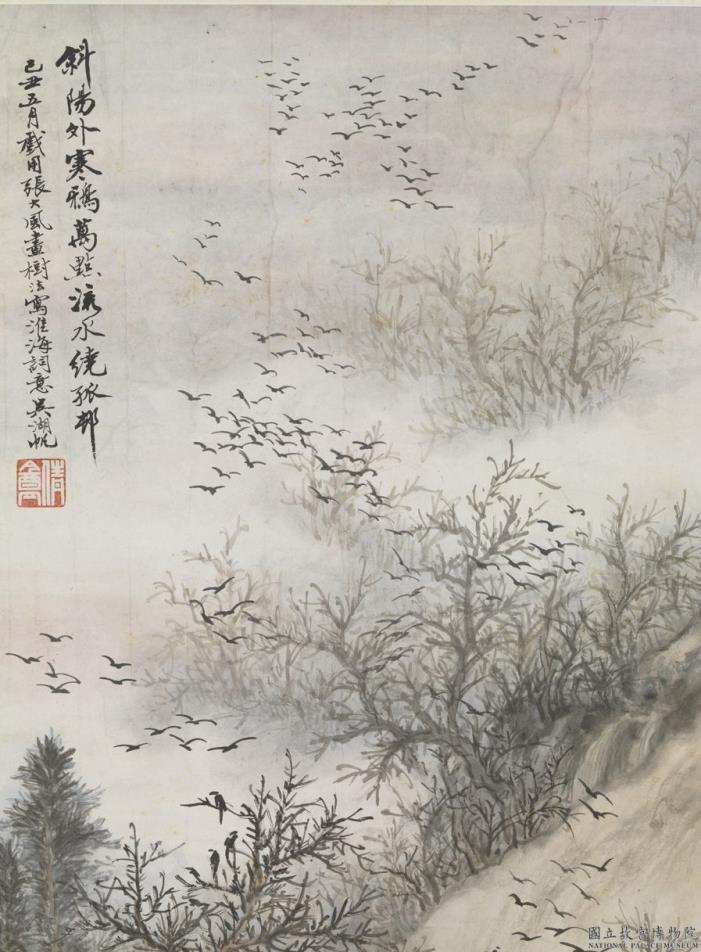 斜陽外寒鴉萬點流水繞孤邨
己丑五月戲用張大風畫樹法寫淮海詞意吳湖帆
倩盦
國立故宮博物院
NATIONAL PALACE MUSEUM